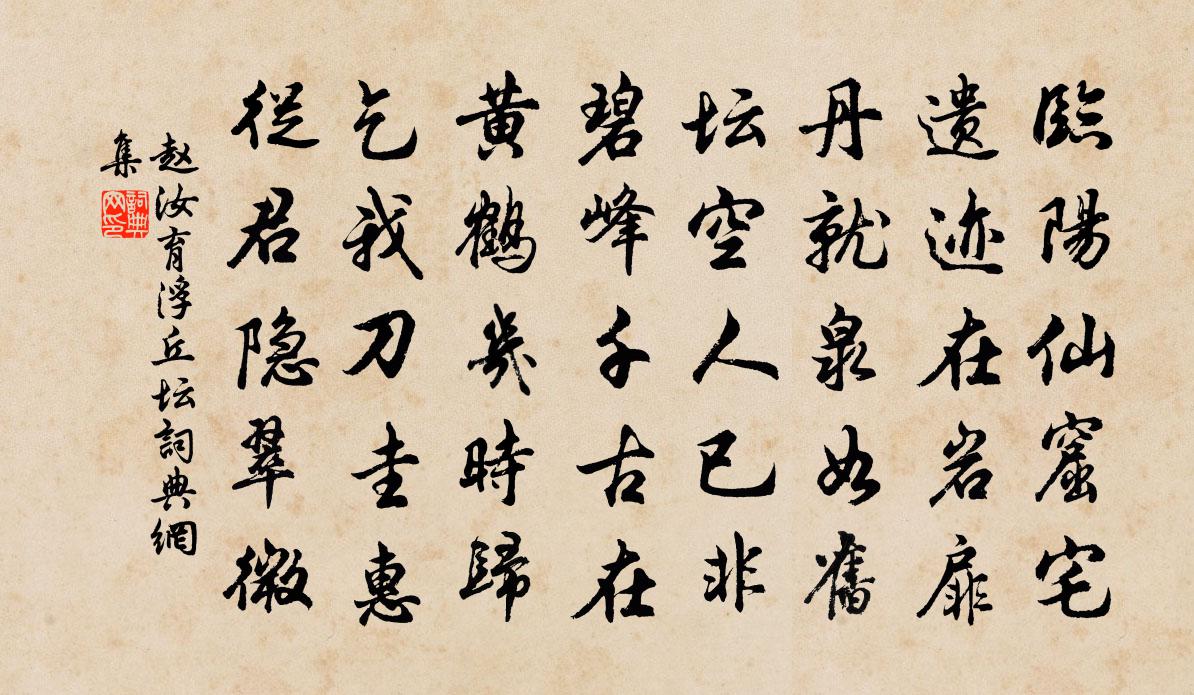 臨陽仙窟宅
遗迹在岩扉
丹就泉如舊
坛空人已非
碧峰千古在
黄鶴幾時歸
乞我刀圭惠
從君隐翠微
赵汝育浮丘坛詞典網
集
詞典
网印